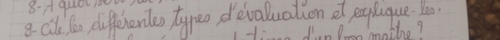 8- A quoi
9- Cite les différentes types d'évaluation et explique-les.
d'un bon maître?